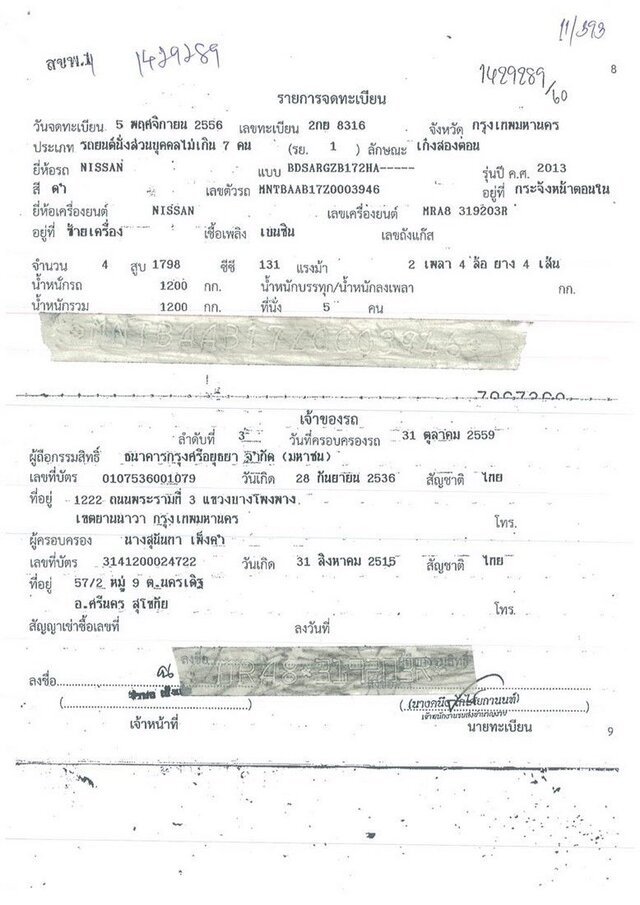 11/393
สขพ.1 1429289
1429289/60
8
รายการจดทะเบียน
วันจดทะเบียน 5 พฤศจิกายน 2556 เลขทะเบียน 2กย 8316 จังหวัด กรุงเทพมหานคร
ประเภท รถยนต์นั่งส่วนบุคคลไม่เกิน 7 คน (รย. 1 ) ลักษณะ เก๋งสองตอน
ยี่ห้อรถ NISSAN แบบ BDSARGZB172HA----- รุ่นปี ค.ศ. 2013
สี ดำ เลขตัวรถ MNTBAAB17Z0003946 อยู่ที่ กระจังหน้าตอนใน
ยี่ห้อเครื่องยนต์ NISSAN เลขเครื่องยนต์ MRA8 319203R
อยู่ที่ ซ้ายเครื่อง เชื้อเพลิง เบนซิน เลขถังแก๊ส
จำนวน 4 สูบ 1798 ซีซี 131 แรงม้า 2 เพลา 4 ล้อ ยาง 4 เส้น
น้ำหนักรถ 1200 กก. น้ำหนักบรรทุก/น้ำหนักลงเพลา กก.
น้ำหนักรวม 1200 กก. ที่นั่ง 5 คน
เจ้าของรถ
ลำดับที่ 3 วันที่ครอบครองรถ 31 ตุลาคม 2559
ผู้ถือกรรมสิทธิ์ ธนาคารกรุงศรีอยุธยา จำกัด (มหาชน)
เลขที่บัตร 0107536001079 วันเกิด 28 กันยายน 2536 สัญชาติ ไทย
ที่อยู่ 1222 ถนนพระรามที่ 3 แขวงบางโพงพาง
เขตยานนาวา กรุงเทพมหานคร โทร.
ผู้ครอบครอง นางสุนันทา เพ็งคำ
เลขที่บัตร 3141200024722 วันเกิด 31 สิงหาคม 2515 สัญชาติ ไทย
ที่อยู่ 57/2 หมู่ 9 ต.นครเดิฐ
อ.ศรีนคร สุโขทัย โทร.
สัญญาเช่าซื้อเลขที่ ลงวันที่
ลงชื่อ
เจ้าหน้าที่ นายทะเบียน
9